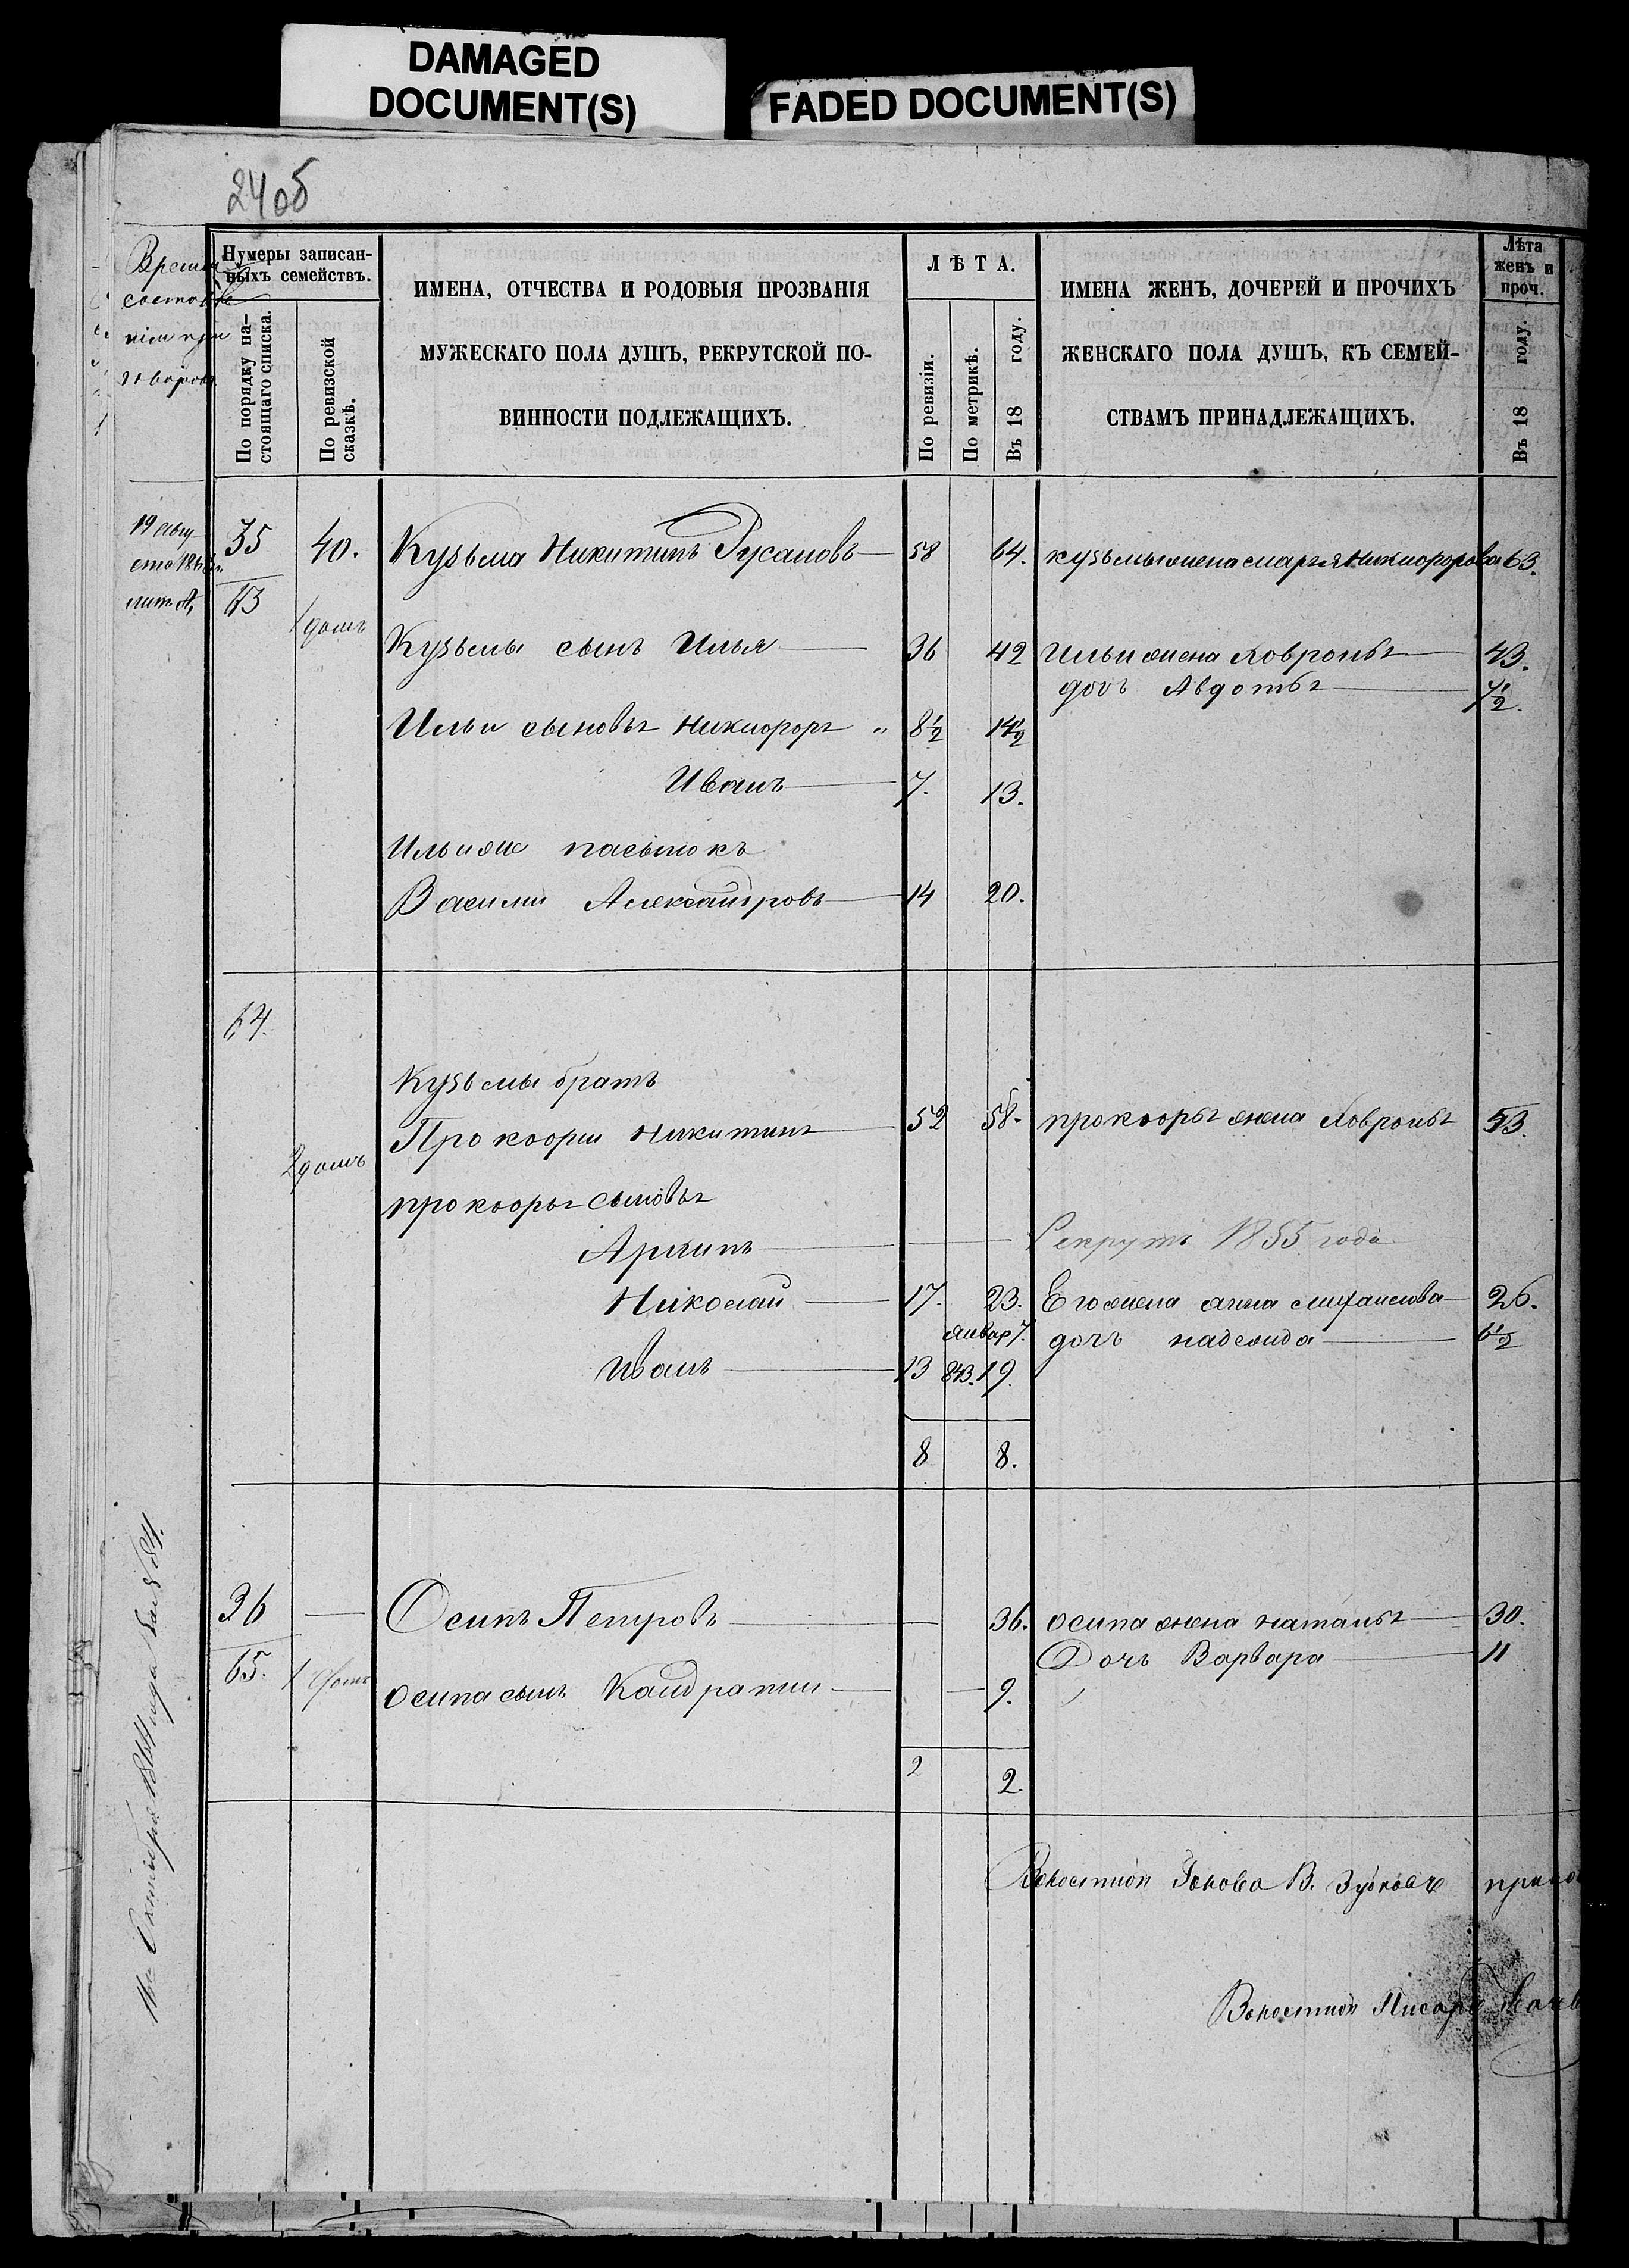 DAMAGED
DOCUMENT(S)
FADED DOCUMENT(S)
24об
Нумеры записан-
ныхъ семействъ.
По порядку на-
стоящаго списка.
По ревизской
сказкѣ.
ИМЕНА, ОТЧЕСТВА И РОДОВЫЯ ПРОЗВАНІЯ
МУЖЕСКАГО ПОЛА ДУШЪ, РЕКРУТСКОЙ ПО-
ВИННОСТИ ПОДЛЕЖАЩИХЪ.
ЛѢТА.
По ревизіи.
По метрикѣ.
Въ 18 году.
ИМЕНА ЖЕНЪ, ДОЧЕРЕЙ И ПРОЧИХЪ
ЖЕНСКАГО ПОЛА ДУШЪ, КЪ СЕМЕЙ-
СТВАМЪ ПРИНАДЛЕЖАЩИХЪ.
Лѣта
женъ и
проч.
Въ 18 году.
Время
19 Авгу
ста
лит. А,
35 40. Кузьма Никитинъ Русановъ 58 64. кузьмы жена марья Никифорова 63.
63
1 домъ
Кузьмы сынъ Илья 36 42 Ильи жена Ховронья 43.
дочь Авдотья 7½.
Ильи сыновья Никифоръ " 8½ 14½
Иванъ 7. 13.
Ильи же пасынокъ
Василии Александровъ 14 20.
64.
Кузьмы братъ
Прокофии Никитинъ 52 58. прокофья жена Ховронья 53.
2 домъ
прокофья сыновья
Архипъ Рекрутъ 1855 года
Николай 17. 23. Его жена анна михаилова 26.
январ 7. дочь надежда 6½
Иванъ 13 843. 19.
8 8.
36 Осипъ Петровъ 36. осипа жена наталья 30.
Дочь Варвара 11
65. 1 домъ
осипа сынъ Кандратии 9.
2 2.
16го Октября 1864 года
Волостной Голова В. Зубковъ
Волостной Писарь